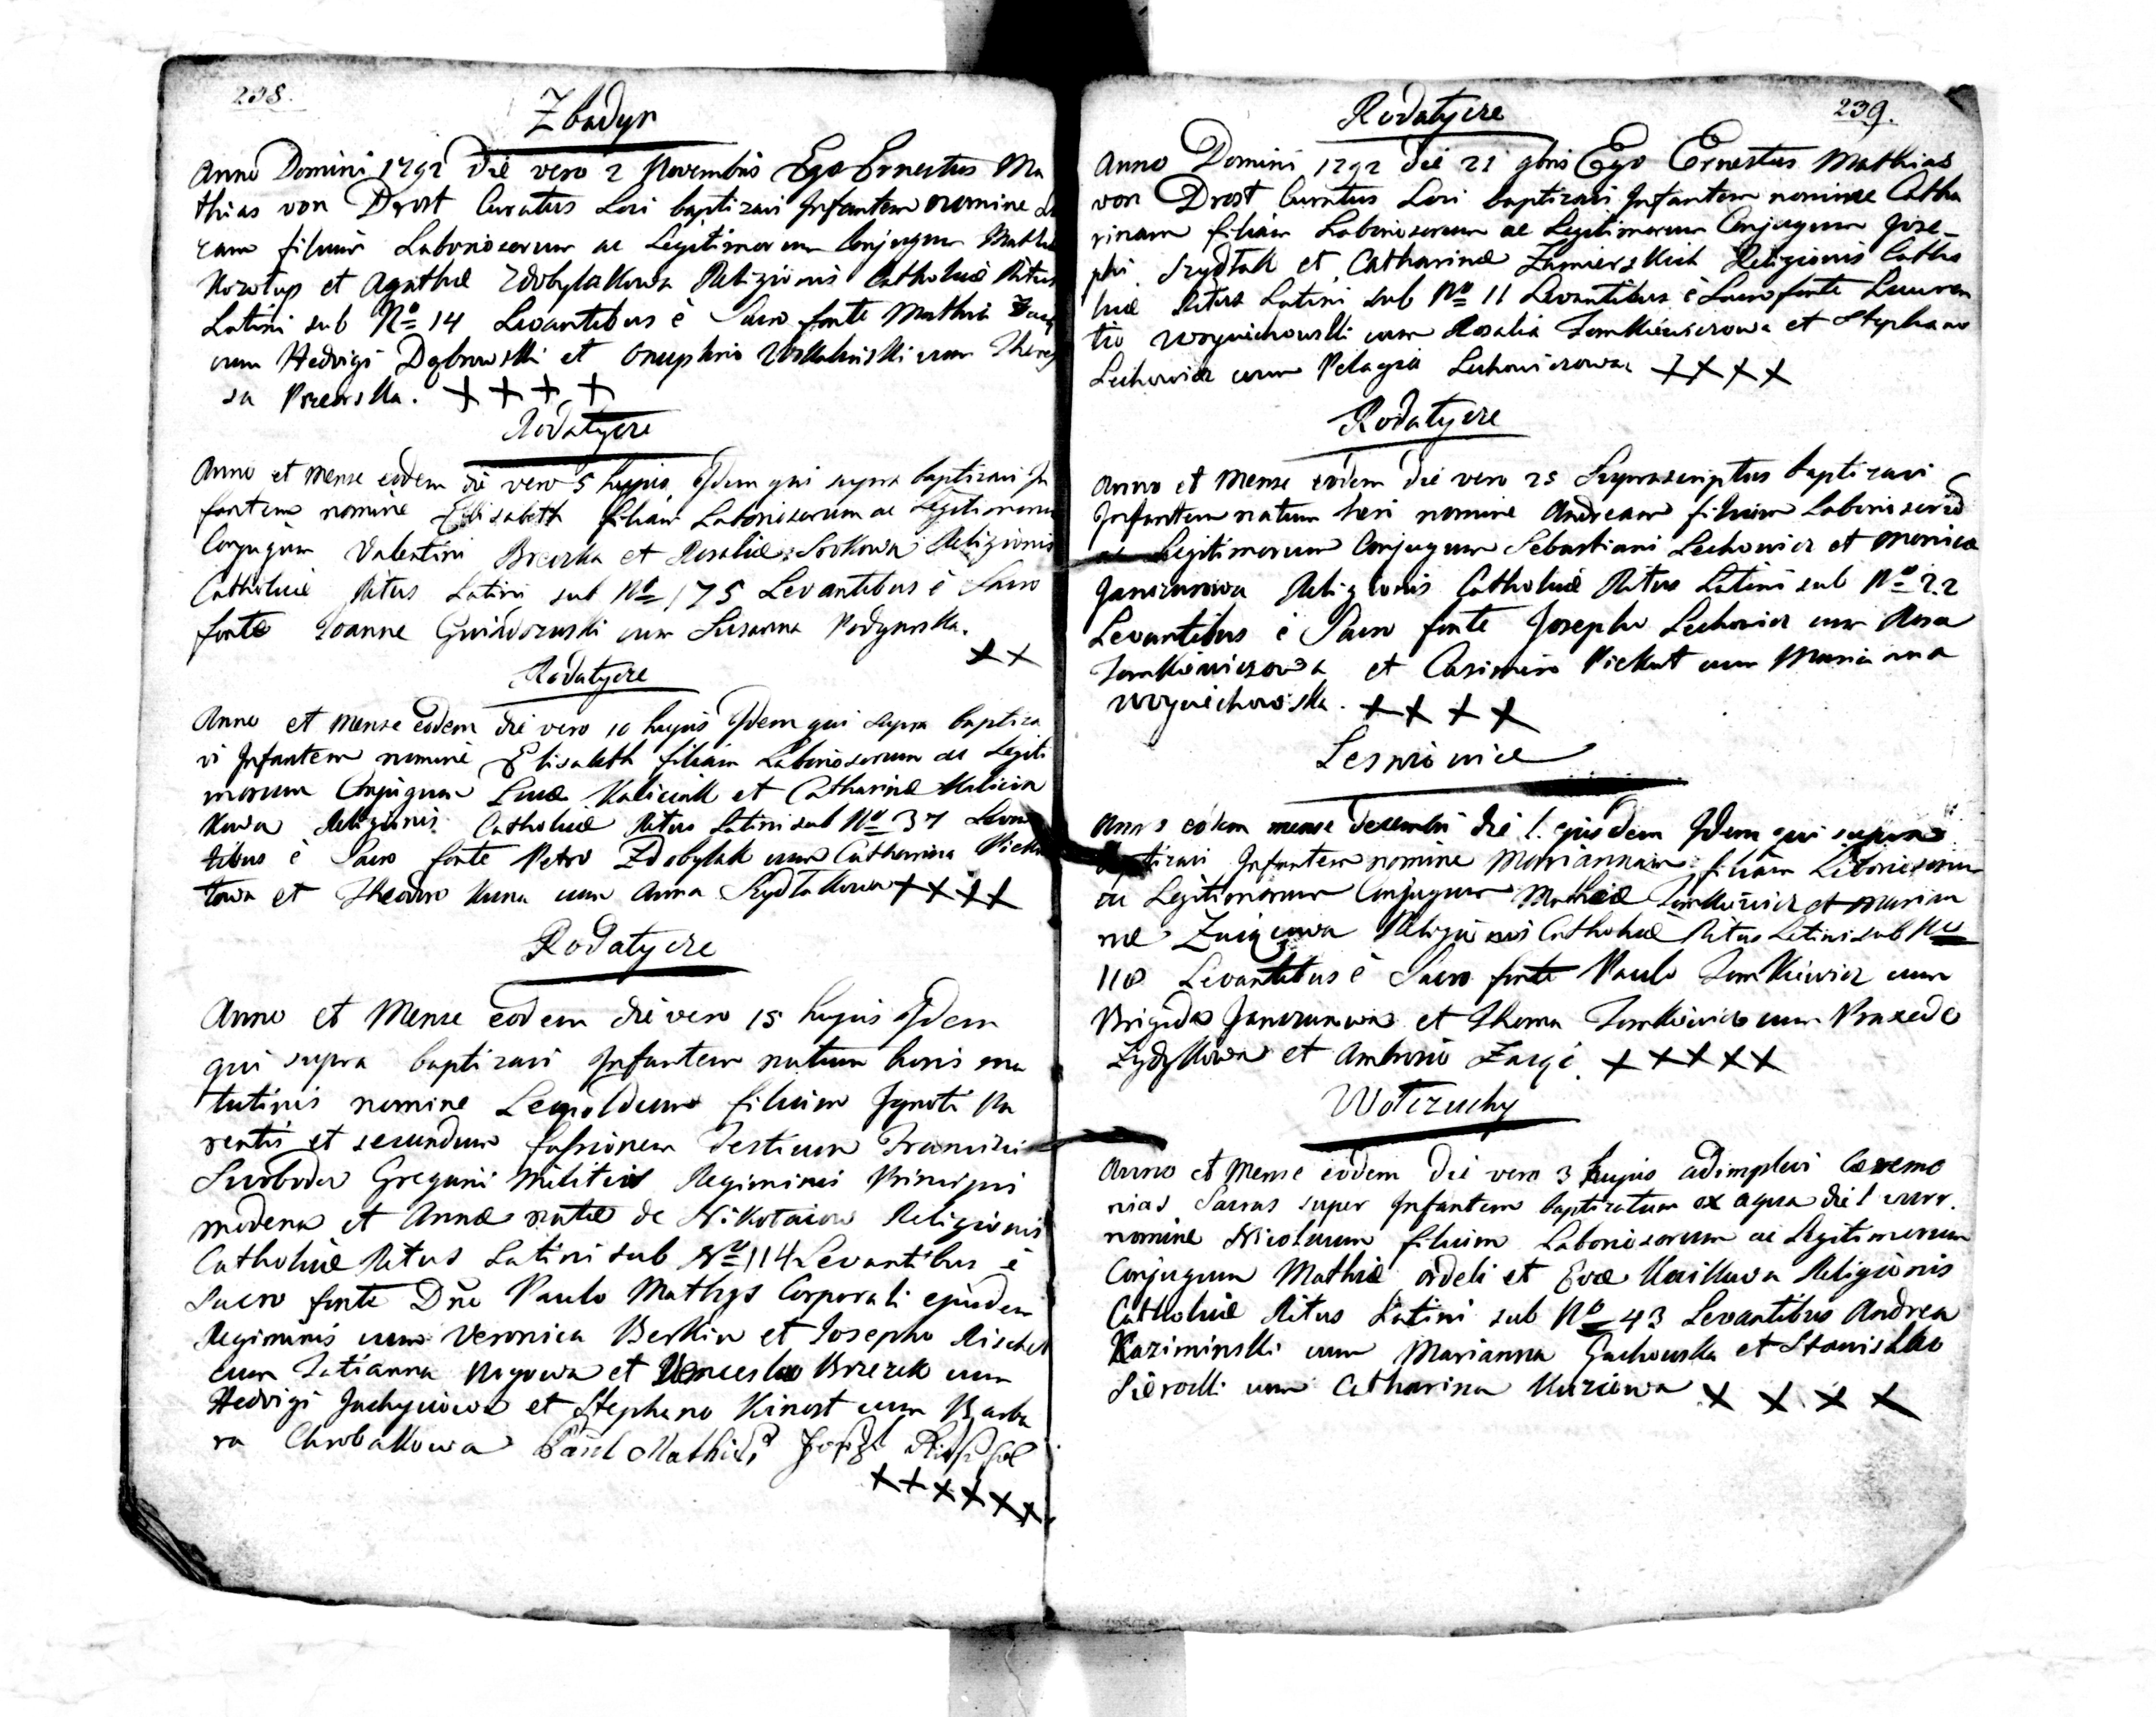 238.
Zbadyn
Anno Domini 1792 die vero 2 Novembris Ego Ernestus Ma
thias von Drost Curatus Loci baptizavi Infantem nomine Lu
cam filium Laboriosorum ac Legitimorum Conjugum Mathi
et Agathæ Zdobylakowa Religionis Catholicæ Ritus
Latini sub No 14 Levantibus è Sacro fonte Mathia
cum Hedvigi Dąbrowski et Onuphrio cum There
sa . ++++
Rodatycze
Anno et Mense eodem die vero 5 hujus Idem qui supra baptizavi In
fantem nomine Elisabeth filiam Laboriosorum ac Legitimorum
Conjugum Valentini et Rosaliæ Religionis
Catholicæ Ritus Latini sub No 175 Levantibus è Sacro
fonte Joanne cum Susanna .
++
Rodatycze
Anno et Mense eodem die vero 10 hujus Idem qui supra baptiza
vi Infantem nomine Elisabeth filiam Laboriosorum ac Legiti
morum Conjugum Lucæ Kaliciak et Catharinæ Kalicia
kowa Religionis Catholicæ Ritus Latini sub No 37 Levan
tibus è Sacro fonte Petro Zdobylak cum Catharina Pieku
towa et Theodoro Kuna cum Anna Szydłakowa ++++
Rodatycze
Anno et Mense eodem die vero 15 hujus Idem
qui supra baptizavi Infantem natum horis ma
tutinis nomine Leopoldum filium Ignoti Pa
rentis et secundum fassionem Testium Francisci
Swoboda Gregarii Militis Regiminis Principis
modena et Annæ natæ de Nikołaiow Religionis
Catholicæ Ritus Latini sub No 114 Levantibus è
Sacro fonte Dno Paulo Mathys Corporali ejusdem
Regiminis cum Veronica Berkin et Josepho Rischel
cum Tatianna et Venceslao Brzezek cum
Hedvigi et Stephano Kinost cum Barba
ra Chrobakowa Paul Mathis Josef
++++++
239.
Rodatycze
Anno Domini 1792 die 21 9bris Ego Ernestus Mathias
von Drost Curatus Loci baptizavi Infantem nomine Catha
rinam filiam Laboriosorum ac Legitimorum Conjugum Jose-
phi Szydłak et Catharinæ Religionis Catho
licæ Ritus Latini sub No 11 Levantibus è Sacro fonte Lauren
tio Woyciechowski cum Rosalia Tomkiewiczowa et Stephano
Lechowicz cum Pelagia Lechowiczowa ++++
Rodatycze
Anno et Mense eodem die vero 25 Suprascriptus baptizavi
Infantem natum heri nomine Andream filium Laboriosorum
ac Legitimorum Conjugum Sebastiani Lechowicz et Monicæ
Janczurowa Religionis Catholicæ Ritus Latini sub No 22
Levantibus è Sacro fonte Josepho Lechowicz cum Rosa
Tomkiewiczowa et Casimiro Piekut cum Marianna
Woyciechowska. ++++
Lesniowice
Anno eodem mense Decembri die 1 ejusdem Idem qui supra
baptizavi Infantem nomine Mariannam filiam Laboriosorum
ac Legitimorum Conjugum Mathiæ Tomkiewicz et Marian
næ Religionis Catholicæ Ritus Latini sub No
118 Levantibus è Sacro fonte Paulo Tomkiewicz cum
Brigida Janczurowa et Thoma Tomkiewicz cum Praxede
Zydzykowa et Ambrosio . +++++
Wołczuchy
Anno et Mense eodem die vero 3 hujus adimplevi Cæremo
nias Sacras super Infantem baptizatum ex aqua die 1 curr.
nomine Nicolaum filium Laboriosorum ac Legitimorum
Conjugum Mathiæ et Evæ Religionis
Catholicæ Ritus Latini sub No 43 Levantibus Andrea
Kaziminski cum Marianna Gachowska et Stanislao
cum Catharina ++++